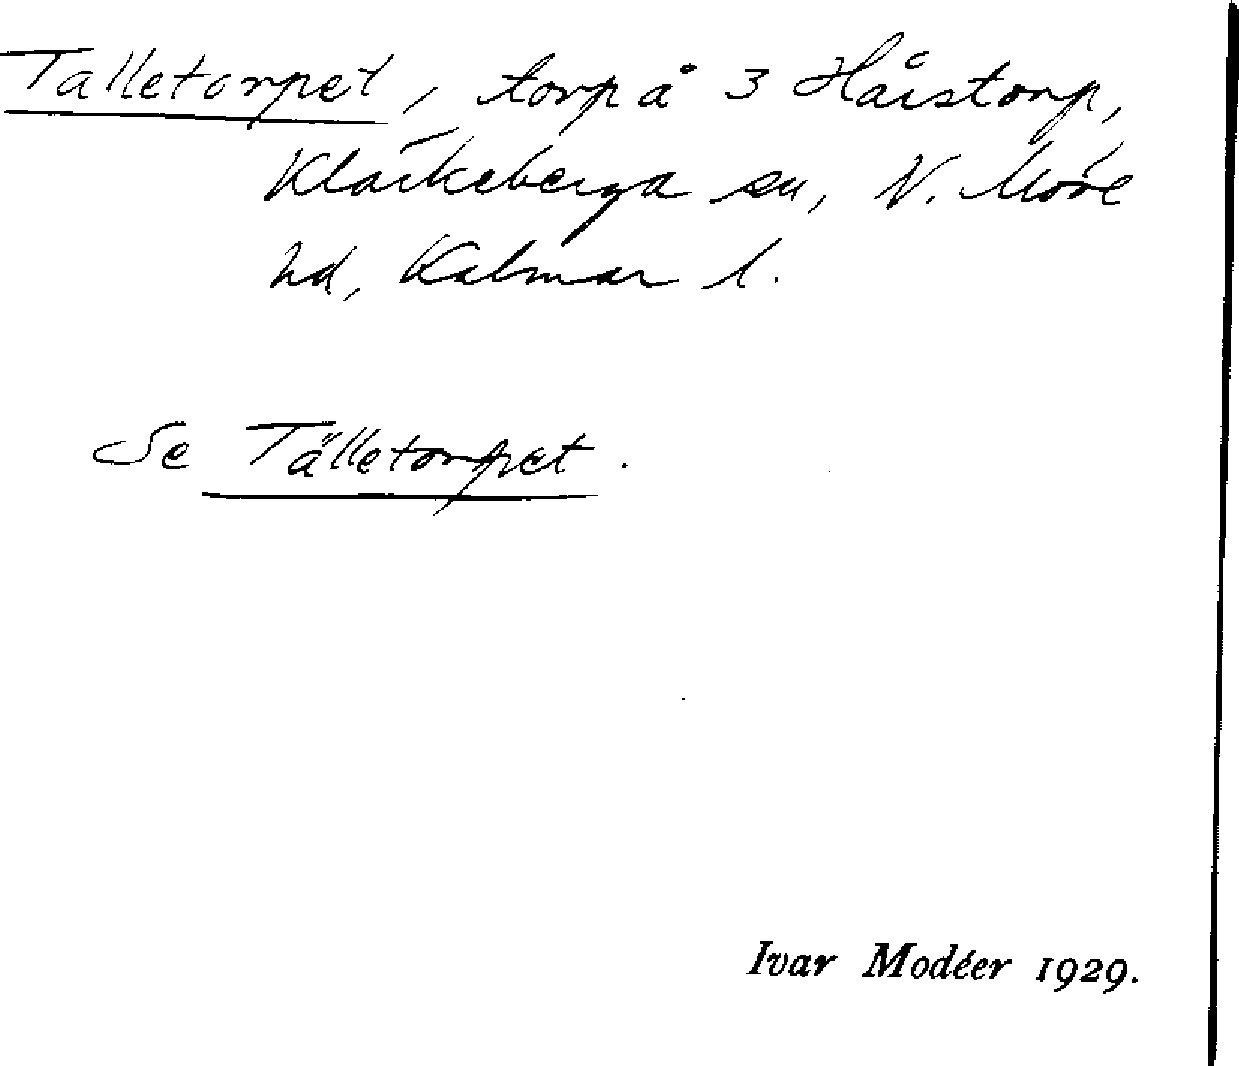 Talletorpet, torp å 3 Håstorp,
Kläckeberga sn, N. Möre
hd, Kalmar l.
Se Tälletorpet.
Ivar Modéer 1929.